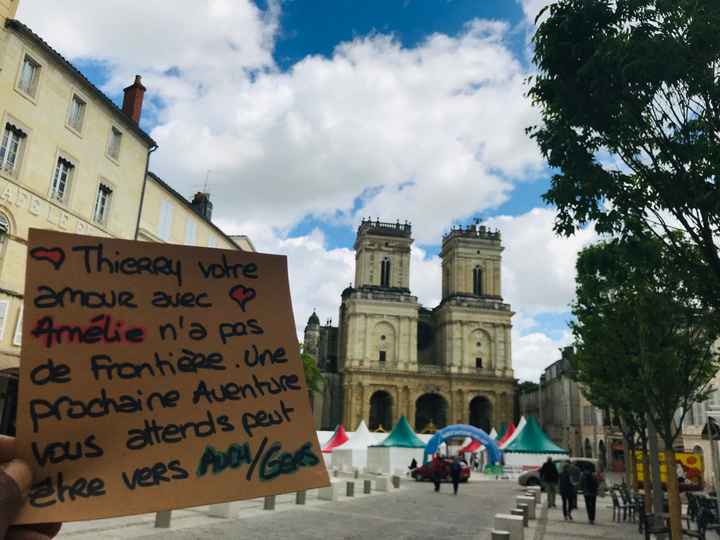 AFE LE
Thierry votre
amour avec
Amélie n'a pas
de Frontière. Une
prochaine Aventure
vous attends peut
être vers Auch/Gers